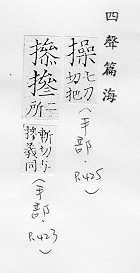 四聲篇海
操七刀切把(手部.P.425)
摻二所斬切与摻義同(手部.P.423)